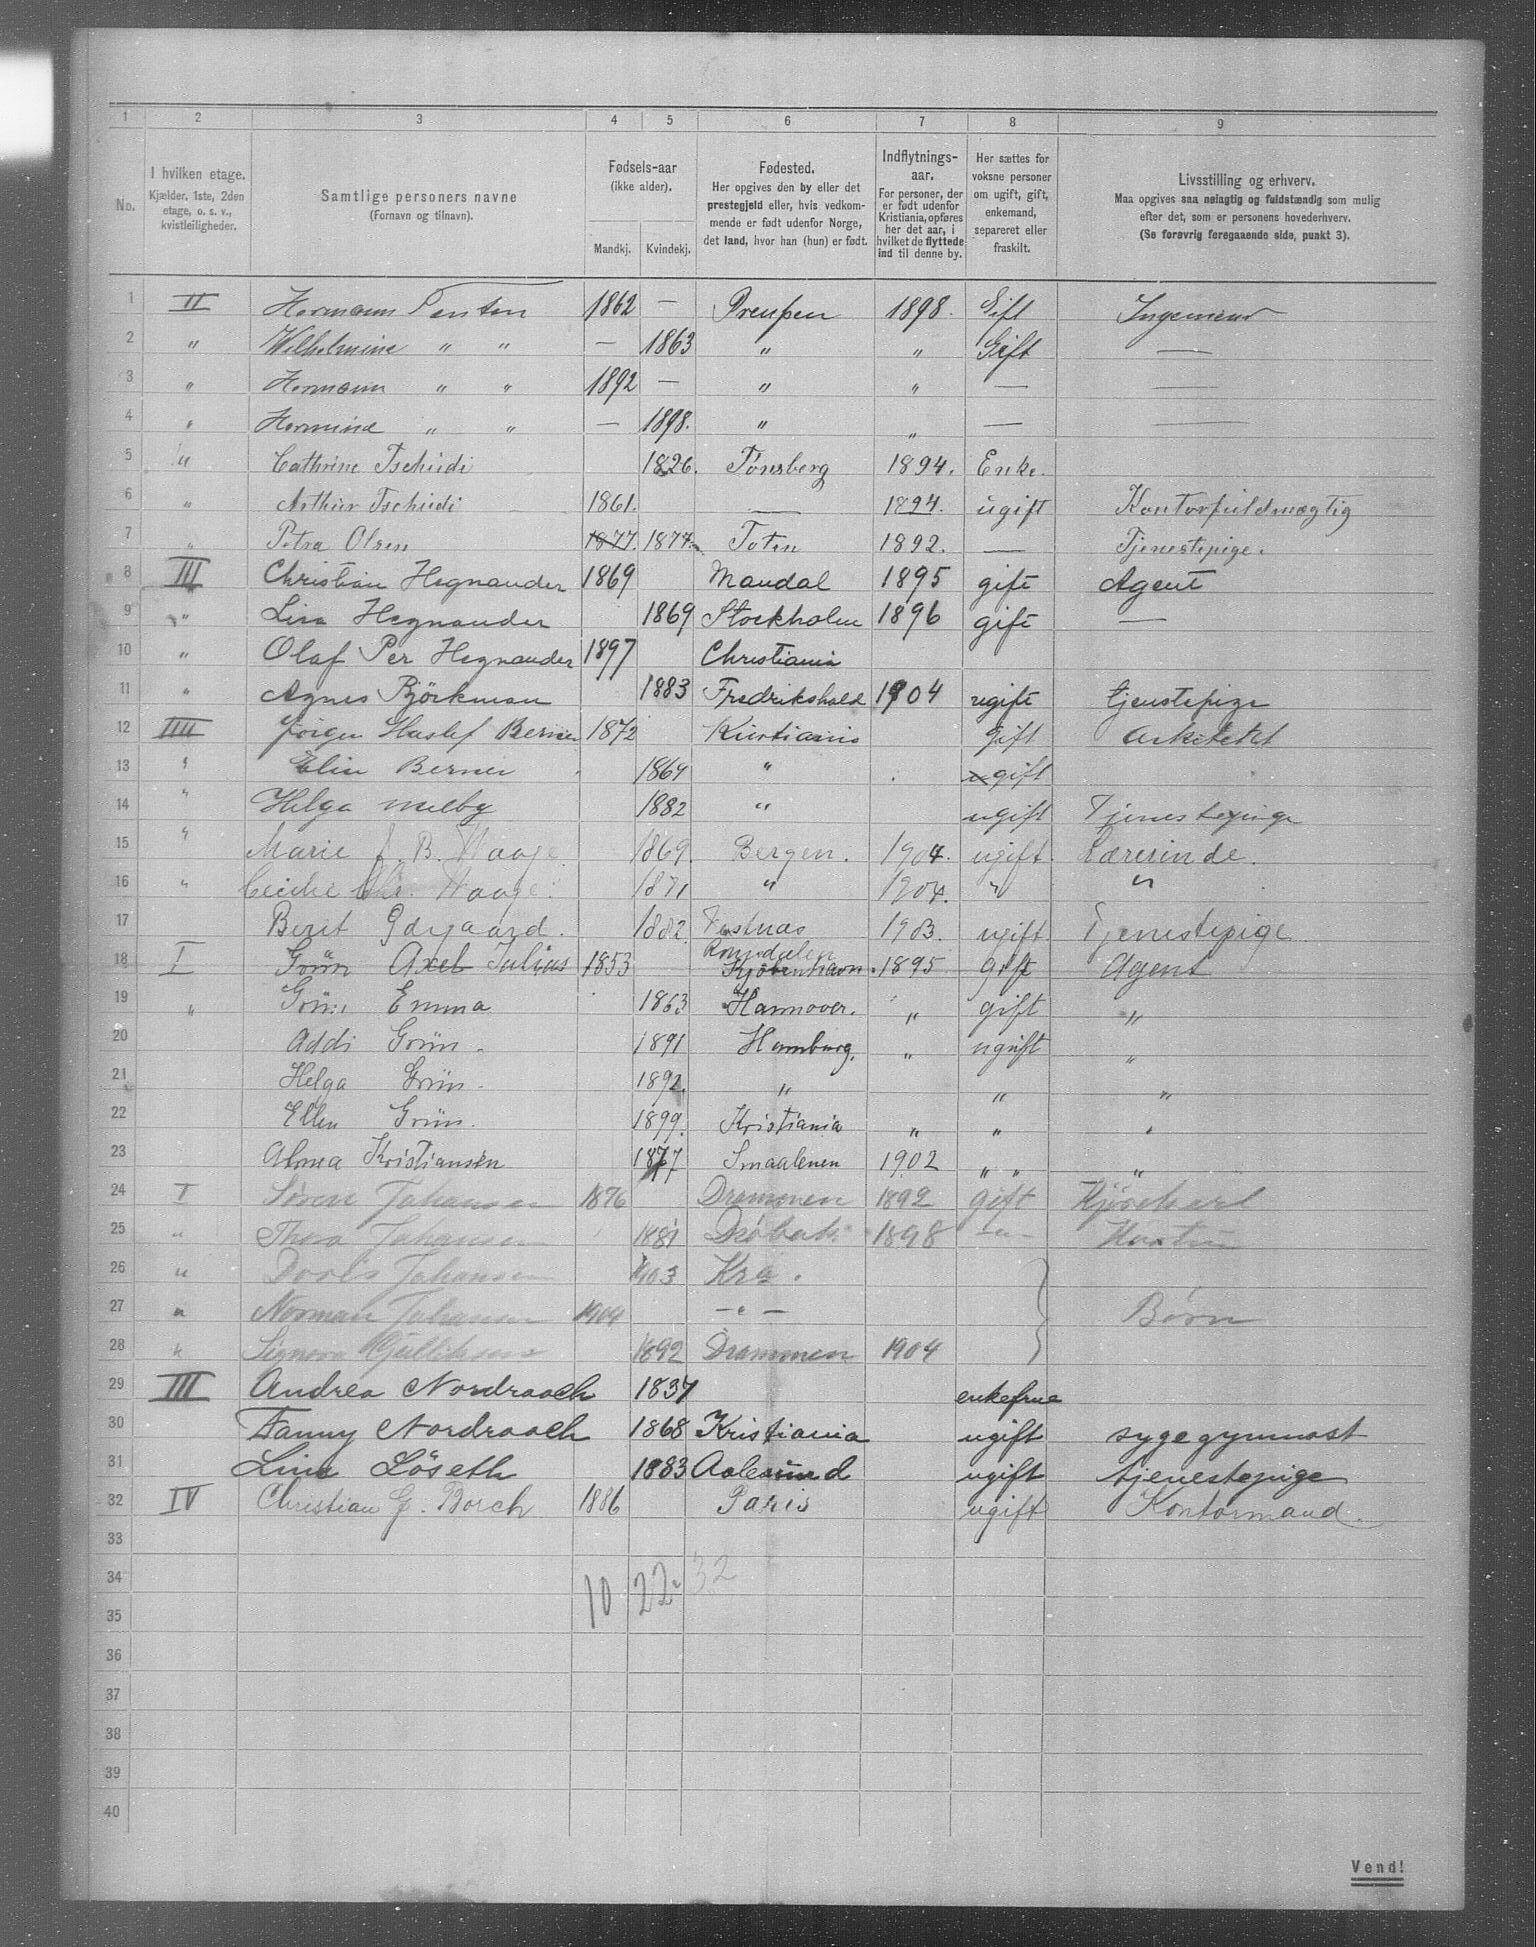 1 2 3 4 5 6 7 8 9
No.
I hvilken etage.
Kjælder, 1ste, 2den
etage, o. s. v.,
kvistleiligheder.
Samtlige personers navne
(Fornavn og tilnavn).
Fødsels-aar
(ikke alder).
Mandkj. Kvindekj.
Fødested.
Her opgives den by eller det
prestegjeld eller, hvis vedkom-
mende er født udenfor Norge,
det land, hvor han (hun) er født.
Indflytnings-
aar.
For personer, der
er født udenfor
Kristiania, opføres
her det aar, i
hvilket de flyttede
ind til denne by.
Her sættes for
voksne personer
om ugift, gift,
enkemand,
separeret eller
fraskilt.
Livsstilling og erhverv.
Maa opgives saa nøiagtig og fuldstændig som mulig
efter det, som er personens hovederhverv.
(Se forøvrig foregaaende side, punkt 3).
1 II Hermann 1862 — Preussen 1898. Gift Ingenieur
2 " Wilhelmine " " — 1863 " " Gift —
3 " Hermann " " 1892 — " " — —
4 " Hermine " " — 1898. " " — —
5 " Cathrine Tschudi 1826. Tønsberg 1894. Enke.
6 " Arthur Tschudi 1861. — 1894. ugift Kontorfuldmægtig
7 " Petra Olsen 1877. 1877. Toten 1892. — Tjenestepige.
8 III Christian Hegnander 1869 Mandal 1895 gift Agent
9 " Lisa Hegnander 1869 Stockholm 1896 gift —
10 " Olaf Per Hegnander 1897 Christiania
11 " Agnes Björkman 1883 Fredrikshald 1904 ugift tjenstepige
12 IIII Jørgen Berner 1872 Kristiania gift arkitekt
13 " Elin Berner 1869 " ugift
14 " Helga Melby 1882 " ugift Tjenestepige
15 " Marie J. B. Waage. 1869. Bergen. 1904. ugift. Lærerinde.
16 " Cecilie Chr. Waage. 1871 " 1904. " "
17 Berit Ødegaard. 1882. Vestnæs 1903. ugift Tjenestepige
Romsdalen
18 I Grün Axel Julius 1853 Kjøbenhavn. 1895 gift Agent
19 " Grün Emma 1863 Hannover. " gift "
20 Addi Grün. 1891 Hamburg. " ugift "
21 Helga Grün. 1892. " " "
22 Ellen Grün. 1899. Kristiania " " "
23 Alma Kristiansen 1877 Smaalenen 1902 " " "
24 I Søren Johansen 1876 Drammen 1892 gift Kjørekarl
25 " Thora Johansen 1881 Drøbak. 1898 —"— Hustru
26 " Doris Johansen 1903 Kra.
27 " Norman Johansen 1904 —"— Børn
28 " Signora Gulliksen 1892 Drammen 1904
29 III Andrea Nordraach 1837 enkefrue
30 Fanny Nordraach 1868 Kristiania ugift sygegymnast
31 Lina Löseth 1883 Aalesund ugift tjenestepige
32 IV Christian G. Borch 1886 Paris ugift Kontormand.
33
34 10 22. 32
35
36
37
38
39
40
Vend!